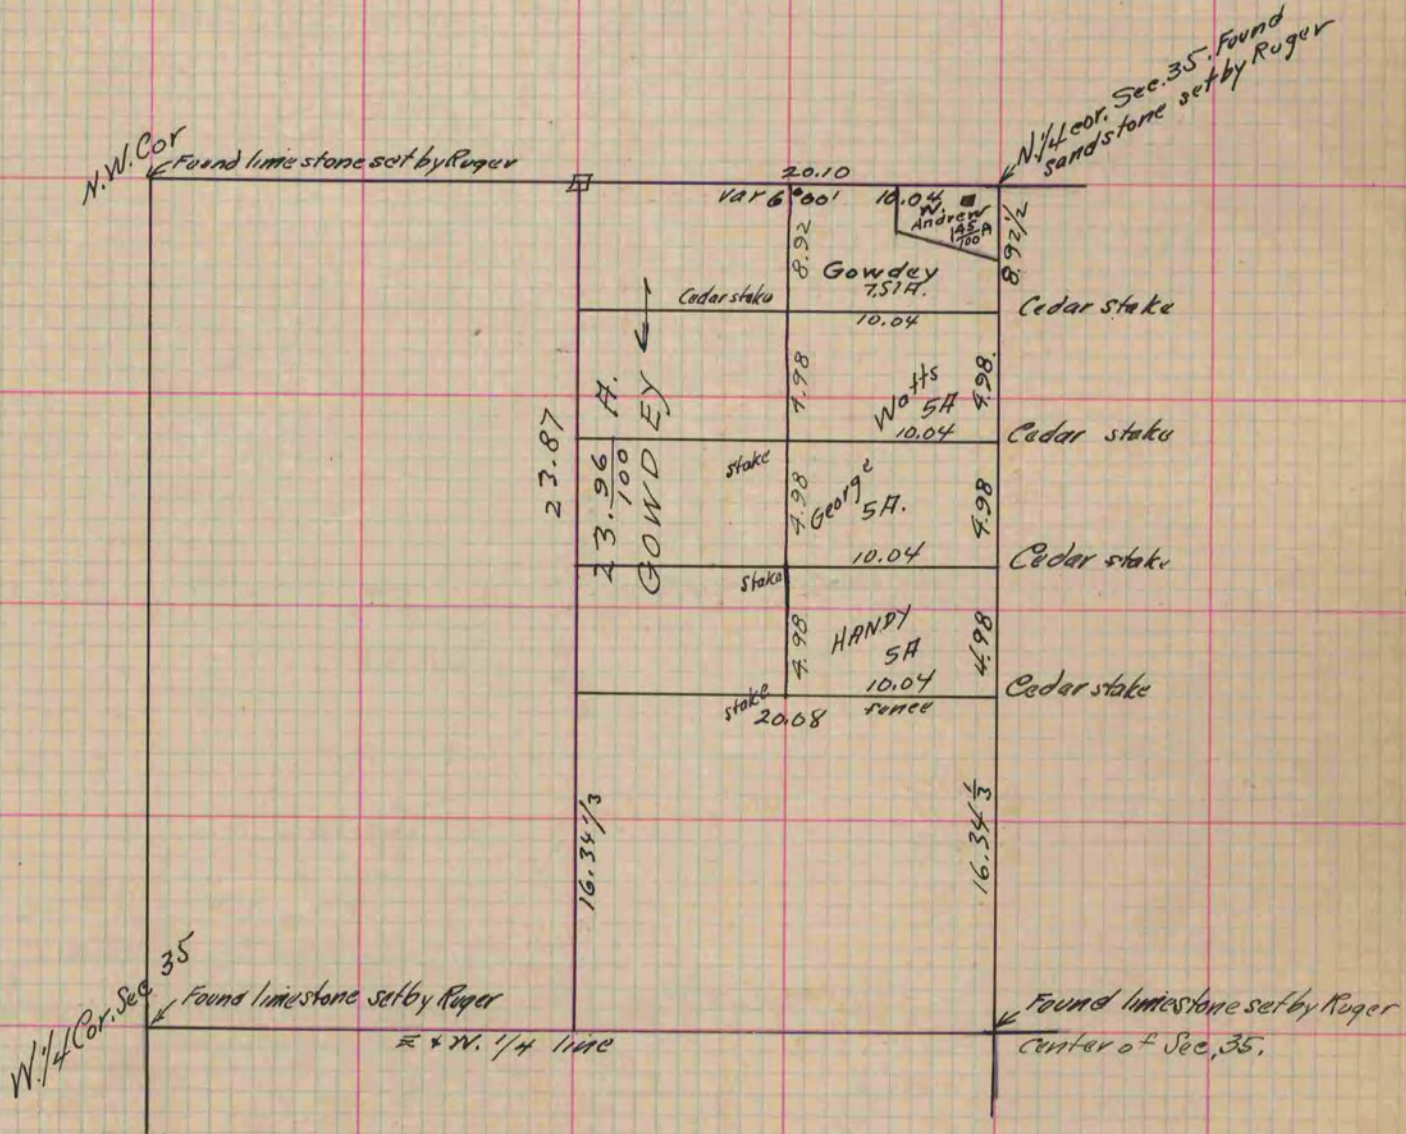 N. 1/4 cor. Sec. 35. Found
sandstone set by Ruger
N.W. Cor
Found limestone set by Ruger
20.10
Var 6°00'
10.04
W.
Andrew
1 45/100 A
8.92
8.92 1/2
Gowdey
7.51 A.
Cedar stake
10.04
Cedar stake
4.98
Watts
5A
4.98.
10.04
Cedar stake
23.87
23. 96/100 A.
GOWDEY
stake
4.98
George
5A.
4.98
10.04
Cedar stake
stake
4.98
HANDY
5A
4.98
10.04
Cedar stake
stake
20.08
fence
16.34 1/3
16.34 1/3
W. 1/4 Cor. Sec 35
Found limestone set by Ruger
Found limestone set by Ruger
E & W. 1/4 line
Center of Sec, 35.